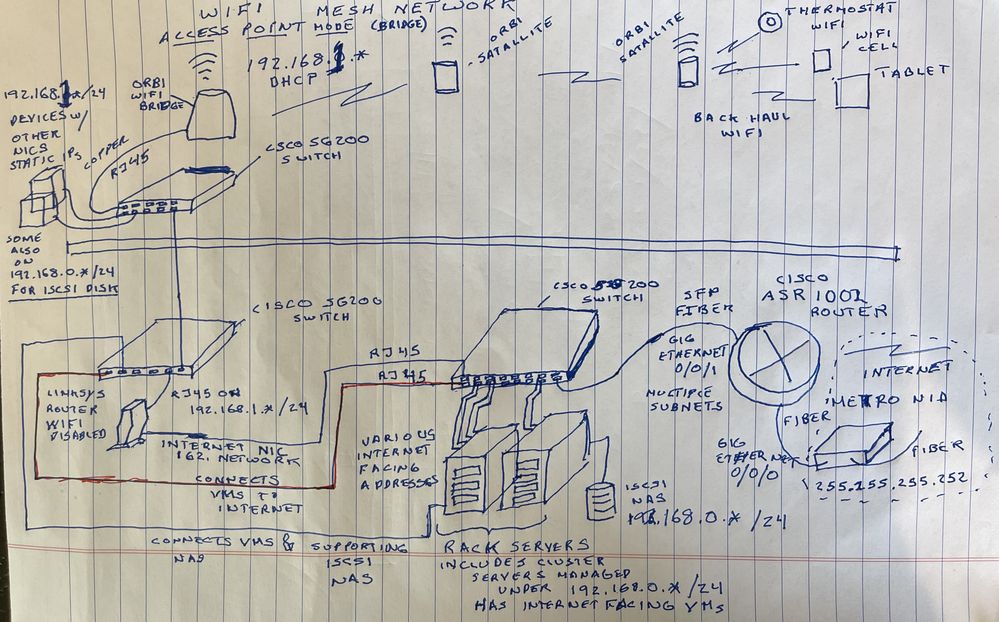 WIFI MESH NETWORK
ACCESS POINT MODE (BRIDGE)
192.168.1.*
DHCP
ORBI
WIFI
BRIDGE
ORBI
SATALLITE
ORBI
SATALLITE
THERMOSTAT
WIFI
WIFI
CELL
TABLET
BACK HAUL
WIFI
192.168.1.*/24
DEVICES W/
OTHER
NICS
STATIC IPS
COPPER
RJ45
CSCO SG200
SWITCH
SOME
ALSO
ON
192.168.0.*/24
FOR ISCSI DISK
CISCO SG200
SWITCH
CSCO SG200
SWITCH
SFP
FIBER
CISCO
ASR 1001
ROUTER
GIG
ETHERNET
0/0/1
MULTIPLE
SUBNETS
INTERNET
METRO NID
FIBER
GIG
ETHERNET
0/0/0
FIBER
255.255.255.252
RJ45
RJ45
LINKSYS
ROUTER
WIFI
DISABLED
RJ45 ON
192.168.1.*/24
INTERNET NIC
162. NETWORK
CONNECTS
VMS TO
INTERNET
VARIOUS
INTERNET
FACING
ADDRESSES
ISCSI
NAS
192.168.0.* /24
CONNECTS VMS &
NAS
SUPPORTING
ISCSI
NAS
RACK SERVERS
INCLUDES CLUSTER
SERVERS MANAGED
UNDER 192.168.0.*/24
HAS INTERNET FACING VMS